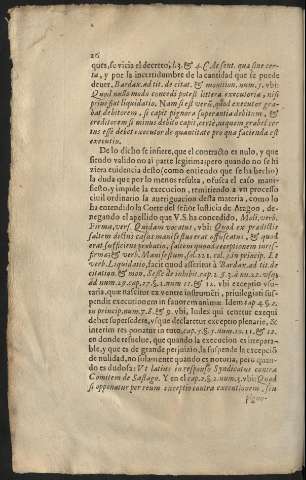 26
ques, se vicia el decreto, l.3. & 4. C. de sent. quæ sine cer-
ta, y por la incertidumbre de la cantidad que se puede
dever, Bardax. ad tit. de citat. & monition. num. 5. vbi:
Quod nullo modo concedi potest littera executoria, nisi
prius fiat liquidatio. Nam si est verũ, quod executor gra-
bat debitorem, si capit pignora superantia debitum, &
creditorem si minus debito capit, ergò, neqeum grabet cer
tus esse debet executor de quantitate pro qua facienda est
executio.
De lo dicho se infiere, que el contracto es nulo, y que
siendo valido no ai parte legitima; pero quando no se hi
ziera evidencia desto (como entiendo que se ha hecho)
la duda que por lo menos resulta, ofusca el caso mani-
fiesto, y impide la execucion, remitiendo a vn processo
civil ordinario la averiguacion desta materia, como lo
ha entendido la Corte del señor Iusticia de Aragon, de-
negando el apellido que V.S. ha concedido, Mol. verò.
Firma, vers. Quidam vocatur, vbi: Quod ex prædictis
saltem dictus casus manifestus erat offuscatus, & quod
erat sufficiens probatio, saltem quoad receptionem iuris-
firmæ; & verb. Manifestum, fol. 221. col. 3. in princip. Et
verb. Liquidatio, facit quod asserit à Bardax. ad tit. de
citation. & mon. Sesse de inhibit. cap. 2. §. 2. à nu. 22. vsq;
ad num. 29. cap. 17. §. 2. num. 11. & 12. vbi exceptio vsu-
raria, quæ nascitur ex ventre instrumẽti, privilegium sus-
pendit executionem in favorem animæ. Idem cap. 4. §. 2.
in princip. num. 7. 8. & 9. vbi, Iudex qui tenetur exequi
debet supersedere, vsque declaretur exceptio plenariè, &
interim res ponatur in tuto, cap. 5. §. 3. num. 10. 11. & 12.
en donde resuelve, que quando la execucion es irrepara-
ble, y que es de grande perjuizio, la suspende la excepciõ
de nulidad, no solamente quando es notoria, pero quan-
do es dudosa: Vt latius in responso Syndicatus contra
Comitem de Sastago. Y en el cap. 7. §. 2. num. 3. vbi: Quod
si opponatur per reum exceptio contra executionem, seu
pigno-